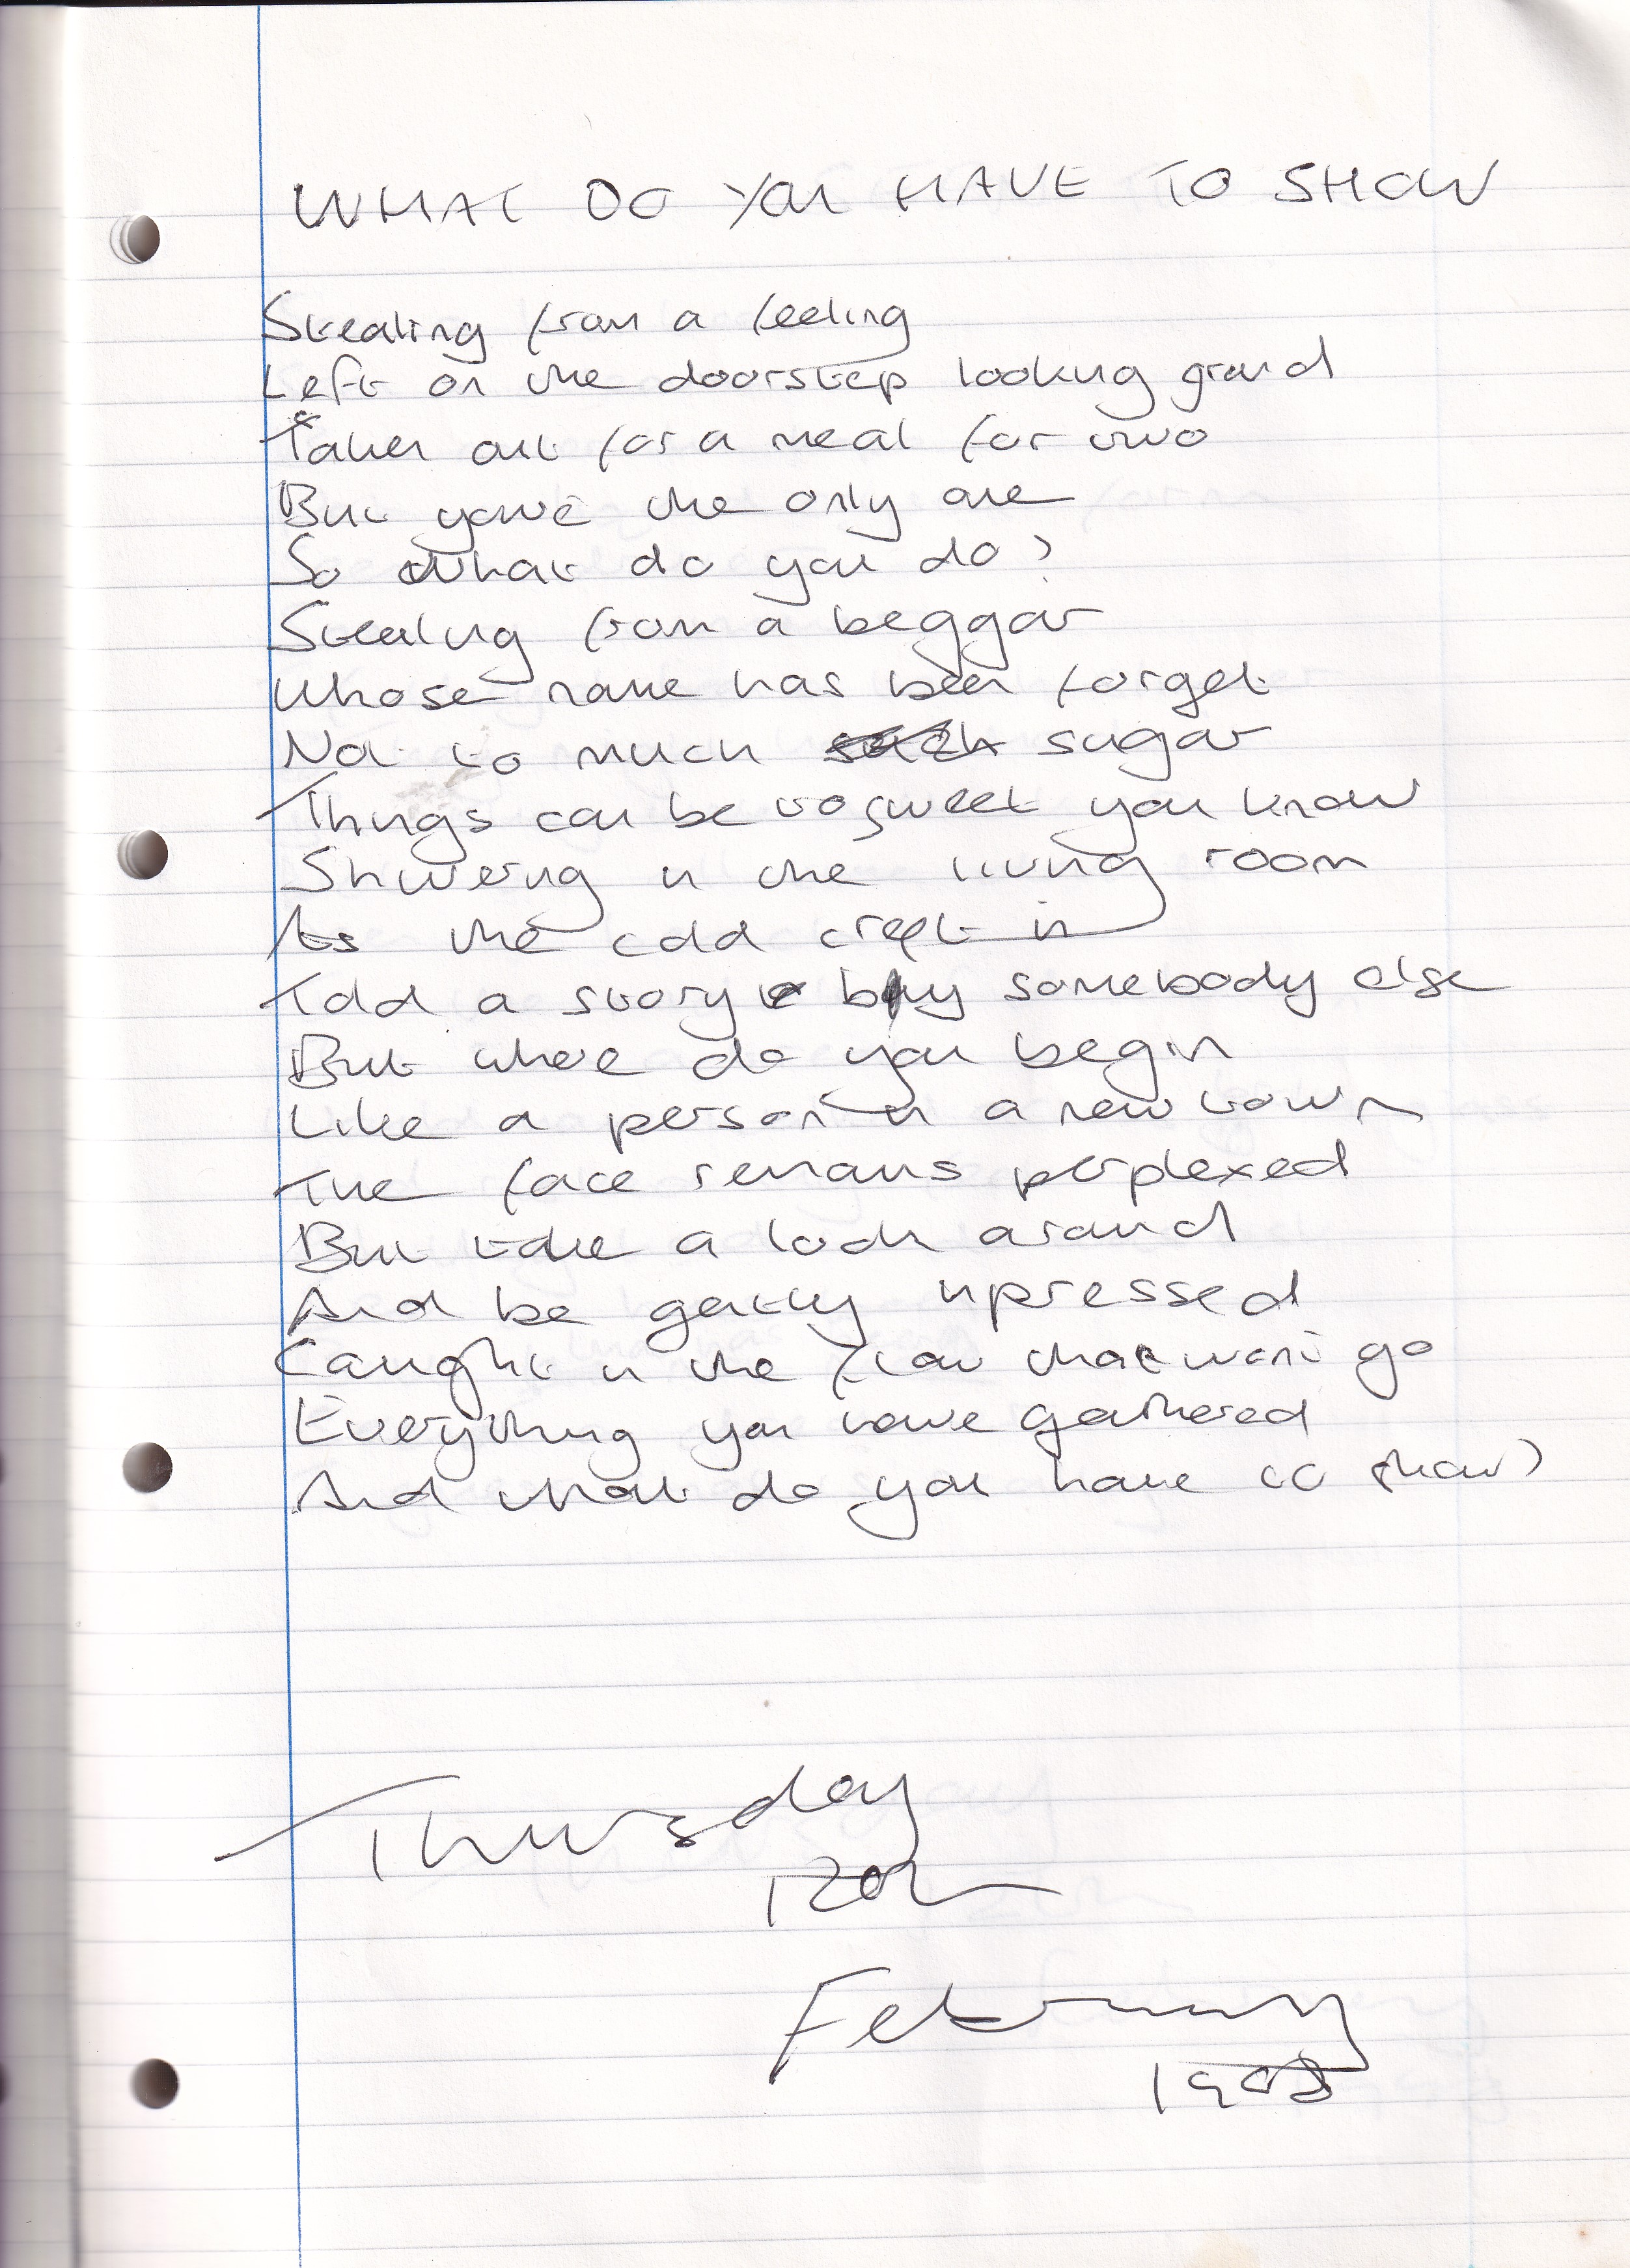 WHAT DO YOU HAVE TO SHOW
Stealing from a feeling
Left on the doorstep looking grand
Taken out for a meal for two
But you're the only one
So what do you do?
Stealing from a beggar
Whose name has been forget
Not to much sugar
Things can be to sweet you know
Shivering in the living room
As the cold crept in
Told a story by somebody else
But where do you begin
Like a person in a new town
The face remains perplexed
But take a look around
And be gently inpressed
Caught in the flow that won't go
Everything you have gathered
And what do you have to show?
Thursday
12th
February